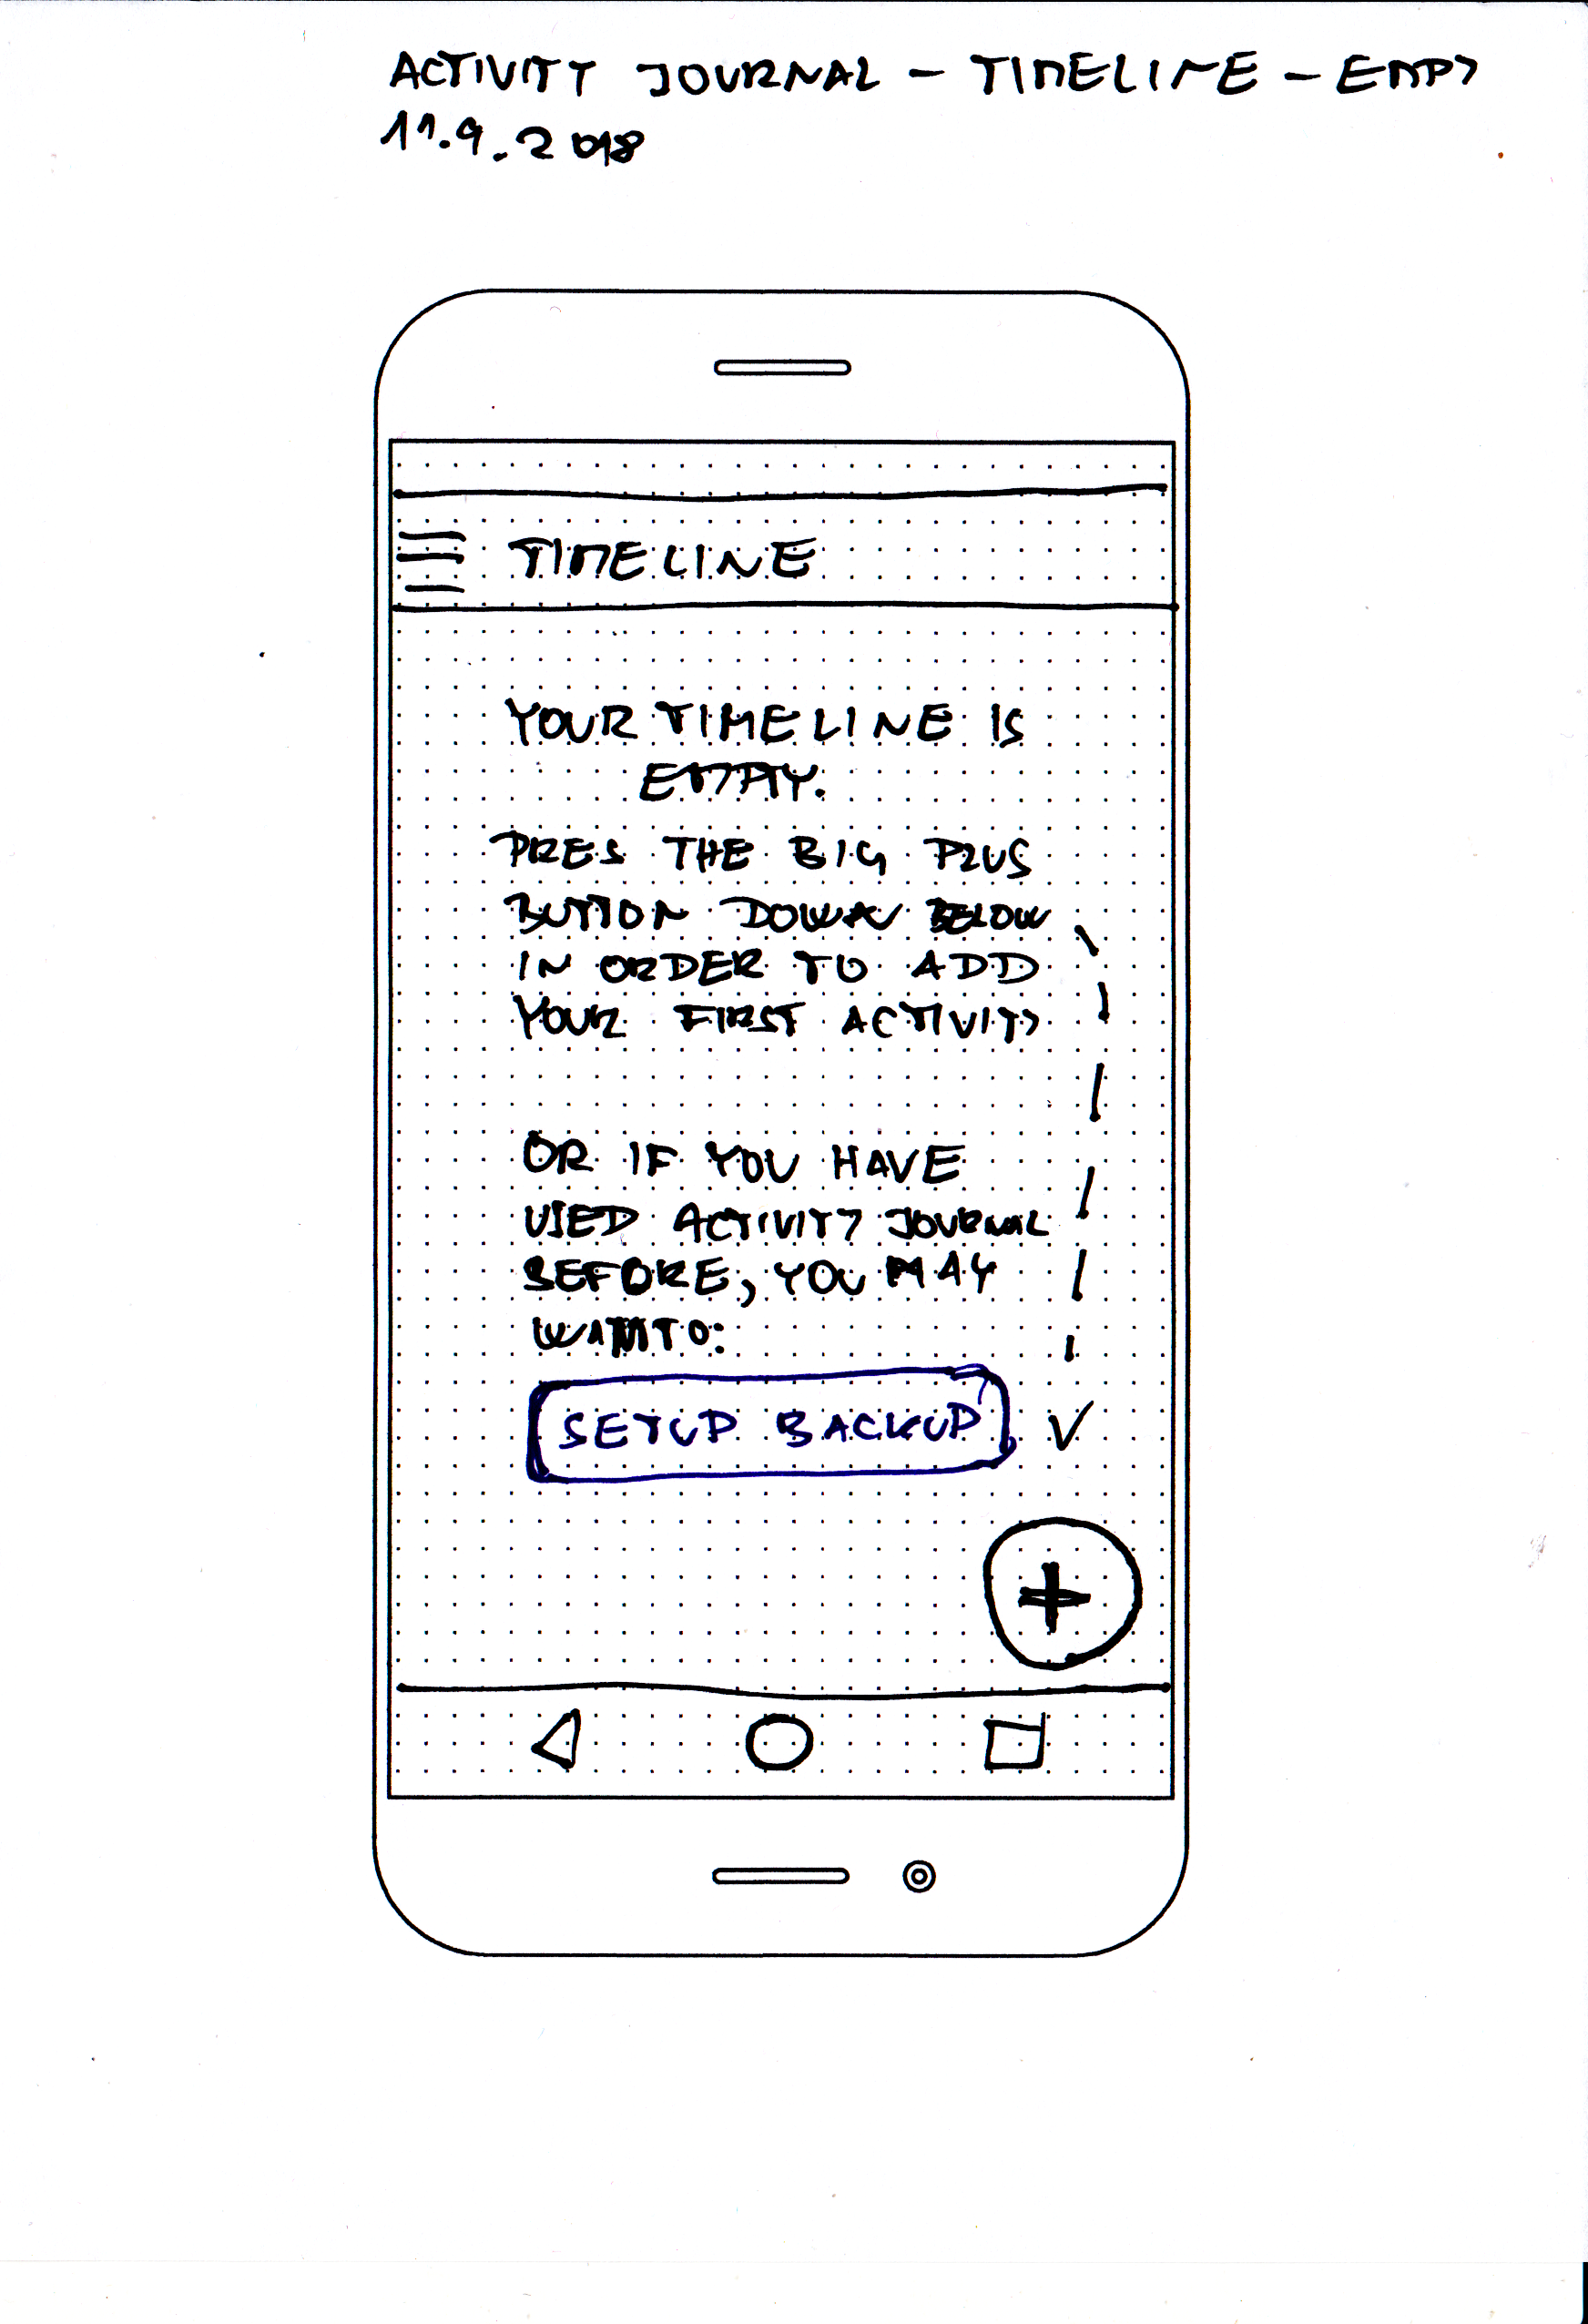 ACTIVITY JOURNAL - TIMELINE - EMPTY
11.9.2018
TIMELINE
YOUR TIMELINE IS
EMPTY.
PRES THE BIG PLUS
BUTTON DOWN BELOW
IN ORDER TO ADD
YOUR FIRST ACTIVITY
OR IF YOU HAVE
USED ACTIVITY JOURNAL
BEFORE, YOU MAY
WANT TO:
SETUP BACKUP
+